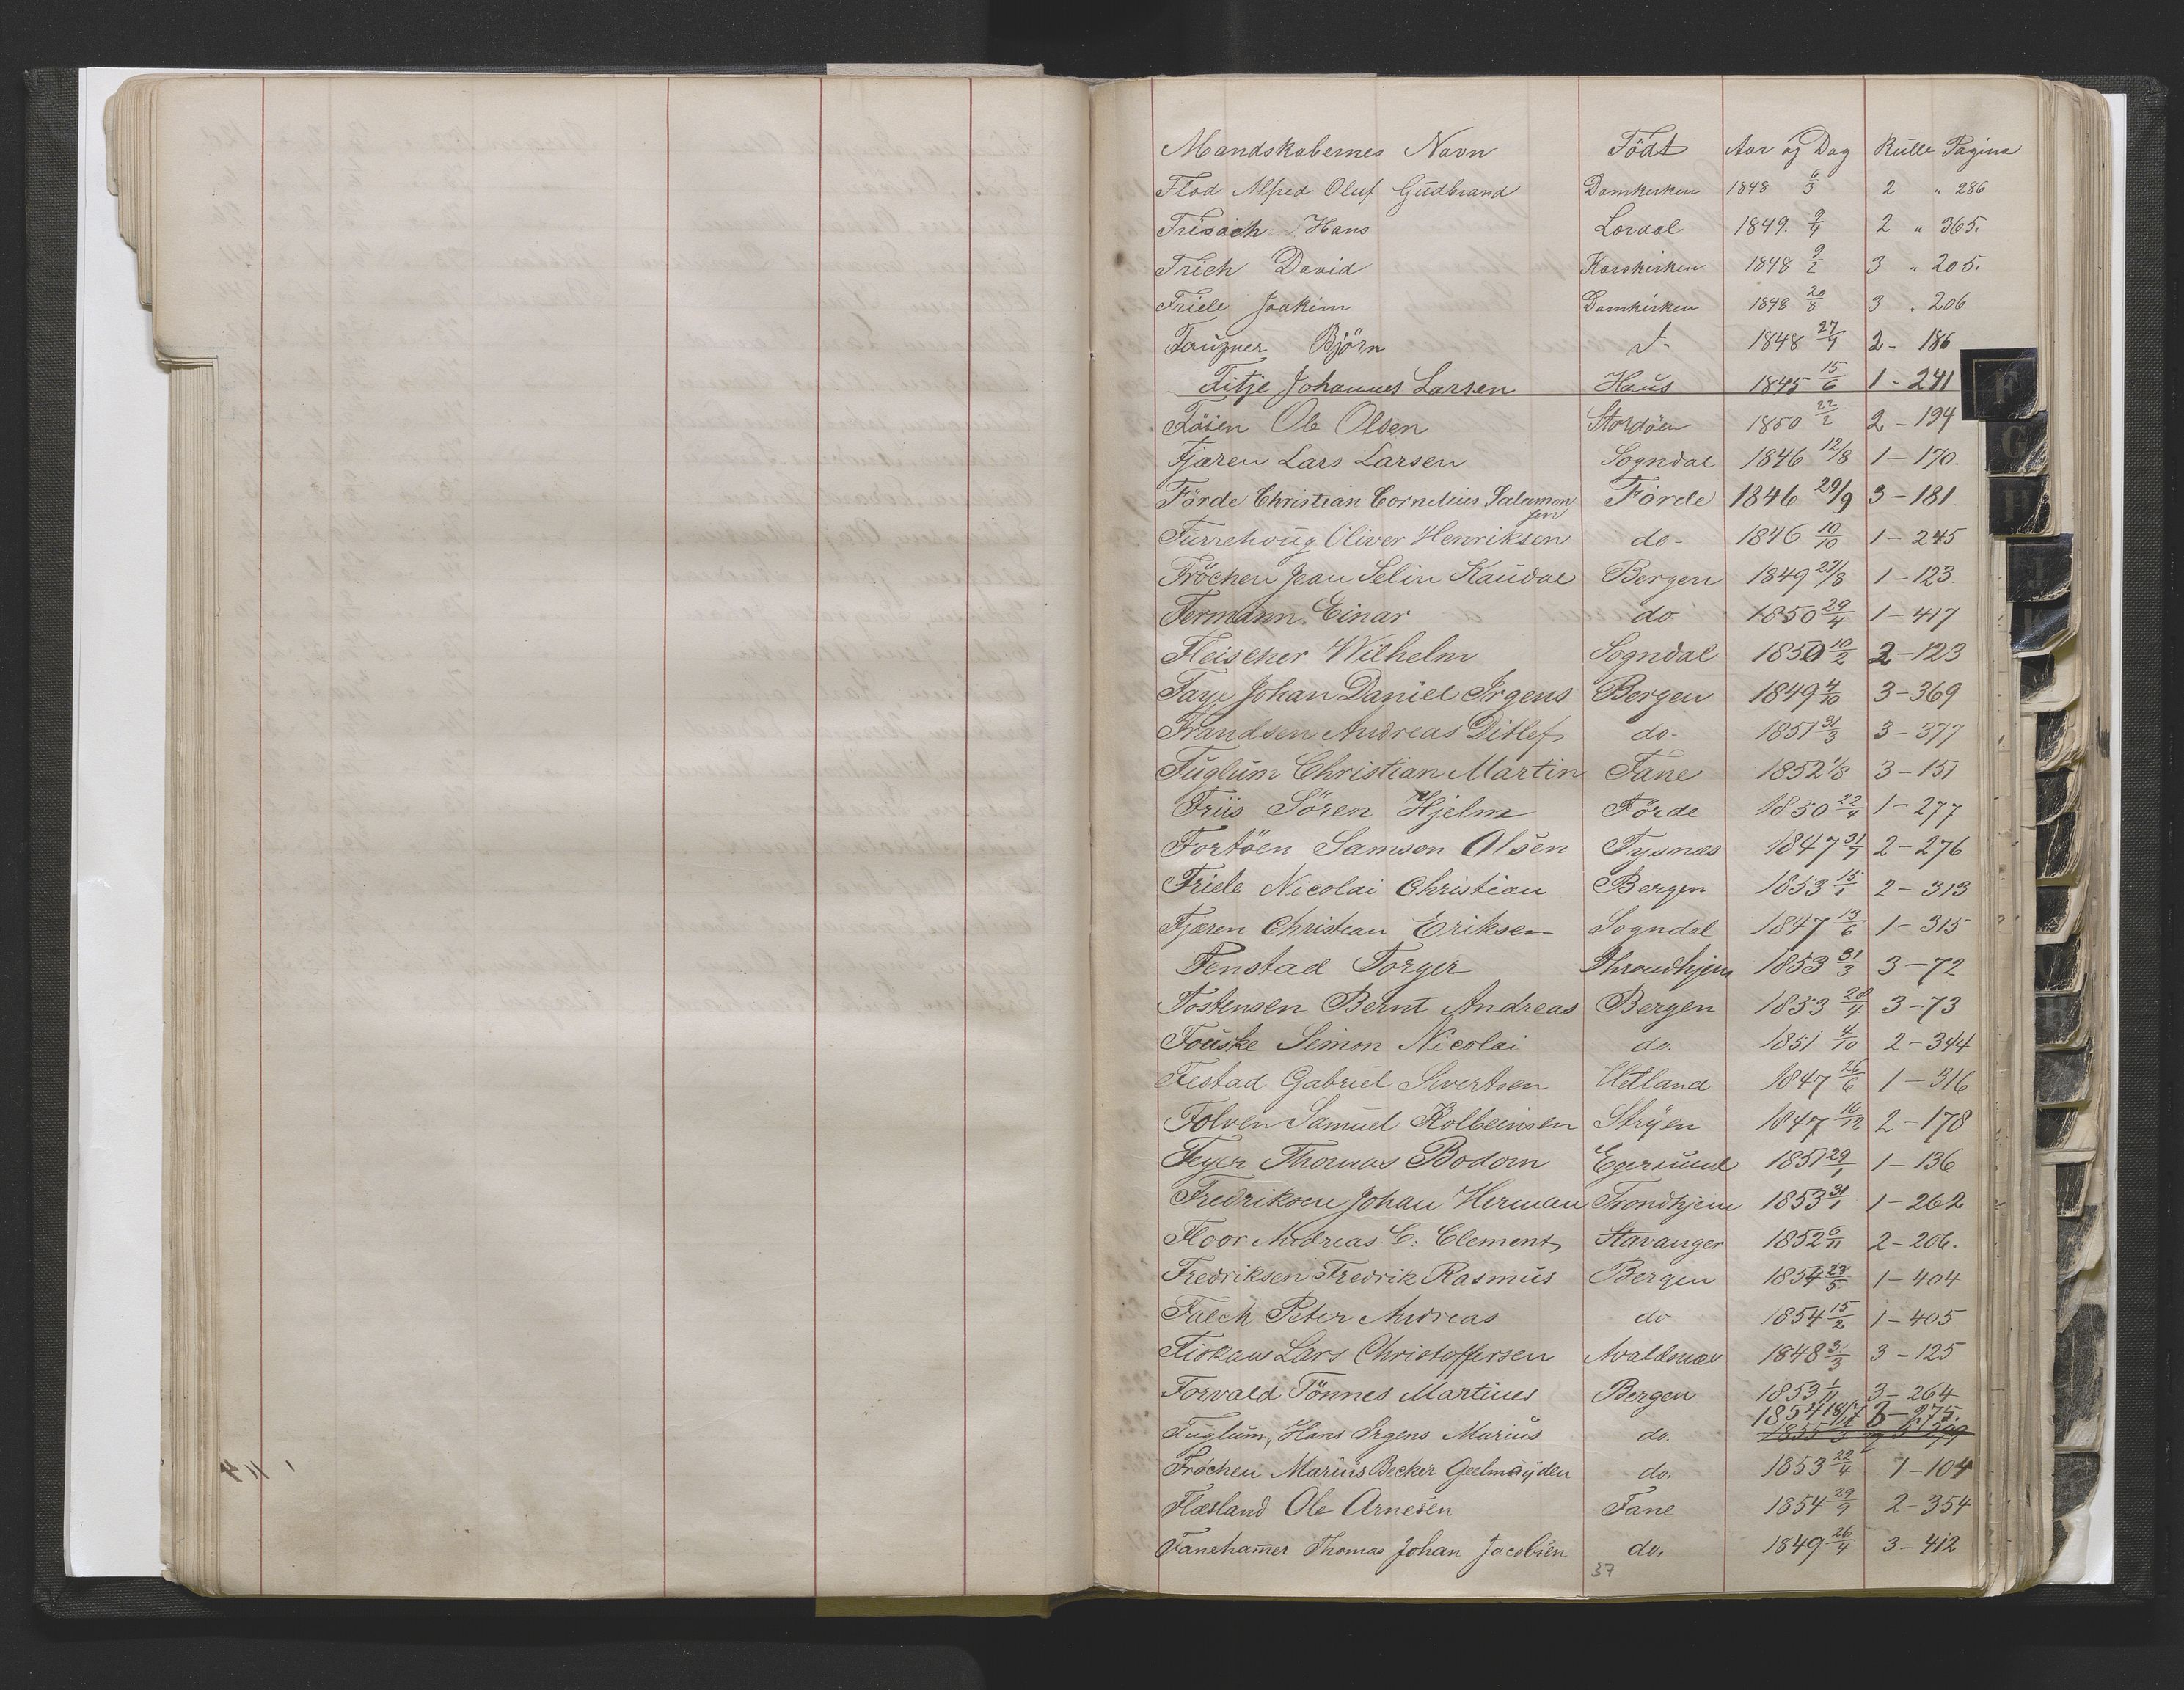 Mandskabernes Navn Födt Aar og Dag Rulle Pagina
Flod Alfred Oluf Gudbrand Domkirken 1848 6/3 2 " 286
Friisach Hans Lærdal 1849. 9/4 2 " 365.
Frich David Korskirken 1848 9/2 3 " 205.
Friele Joakim Domkirken 1848 20/8 3 " 206
Fougner Björn d- 1848 27/4 2 - 186
Fitje Johannes Larsen Haus 1845 15/6 1 - 241
Föien Ole Olsen Stordöen 1850 22/2 2 - 194
Fjæren Lars Larsen Sogndal 1846 12/8 1 - 170.
Förde Christian Cornelius Salamon Förde 1846 29/9 3 - 181.
sen
Furrehoug Oliver Henriksen do- 1846 10/10 1 - 245
Fröchen Jean Selin Kaudal Bergen 1849 27/8 1 - 123.
Fermann Einar do 1850 29/4 1 - 417
Fleischer Wilhelm Sogndal 1850 10/2 2 - 123
Faye Johan Daniel Irgens Bergen 1849 4/10 3 - 369
Frandsen Andreas Ditlef do- 1851 31/3 3 - 377
Fuglum Christian Martin Fane 1852 1/8 3 - 151
Friis Sören Hjelm Förde 1850 22/4 1 - 277
Fortöen Samson Olsen Tysnæs 1847 31/7 2 - 276
Friele Nicolai Christian Bergen 1853 15/1 2 - 313
Fjæren Christian Eriksen Sogndal 1847 13/6 1 - 315
Fenstad Torger Throndhjem 1853 31/3 3 - 72
Fostensen Bernt Andreas Bergen 1853 28/4 3 - 73
Fouske Simon Nicolai do. 1851 4/10 2 - 344
Festad Gabriel Sivertsen Hetland 1847 26/6 1 - 316
Folven Samuel Kolbeinsen Stryen 1847 16/12 2 - 178
Feyer Thomas Bodom Egersund 1851 29/1 1 - 136
Fredriksen Johan Herman Trondhjem 1853 31/1 1 - 262
Floor Andreas C. Clement Stavanger 1852 6/11 2 - 206.
Fredriksen Fredrik Rasmus Bergen 1854 23/5 1 - 404
Falch Peter Andreas do 1854 15/2 1 - 405
Fiskaus Lars Christoffersen Avaldsnæs 1848 3/3 3 - 125
Forvald Tönnes Martines Bergen 1853 1/11 3 - 264
1854 18/7 3 - 275.
Fuglum, Hans Irgens Marius do. 1855
Fröchen Marius Becker Geelmuyden do. 1853 22/4 1 - 104
Flæsland Ole Arnesen Fane 1854 29/9 2 - 354
Fanehamer Thomas Johan Jacobsen do. 1849 26/4 3 - 412
37
F
G
H
J
K